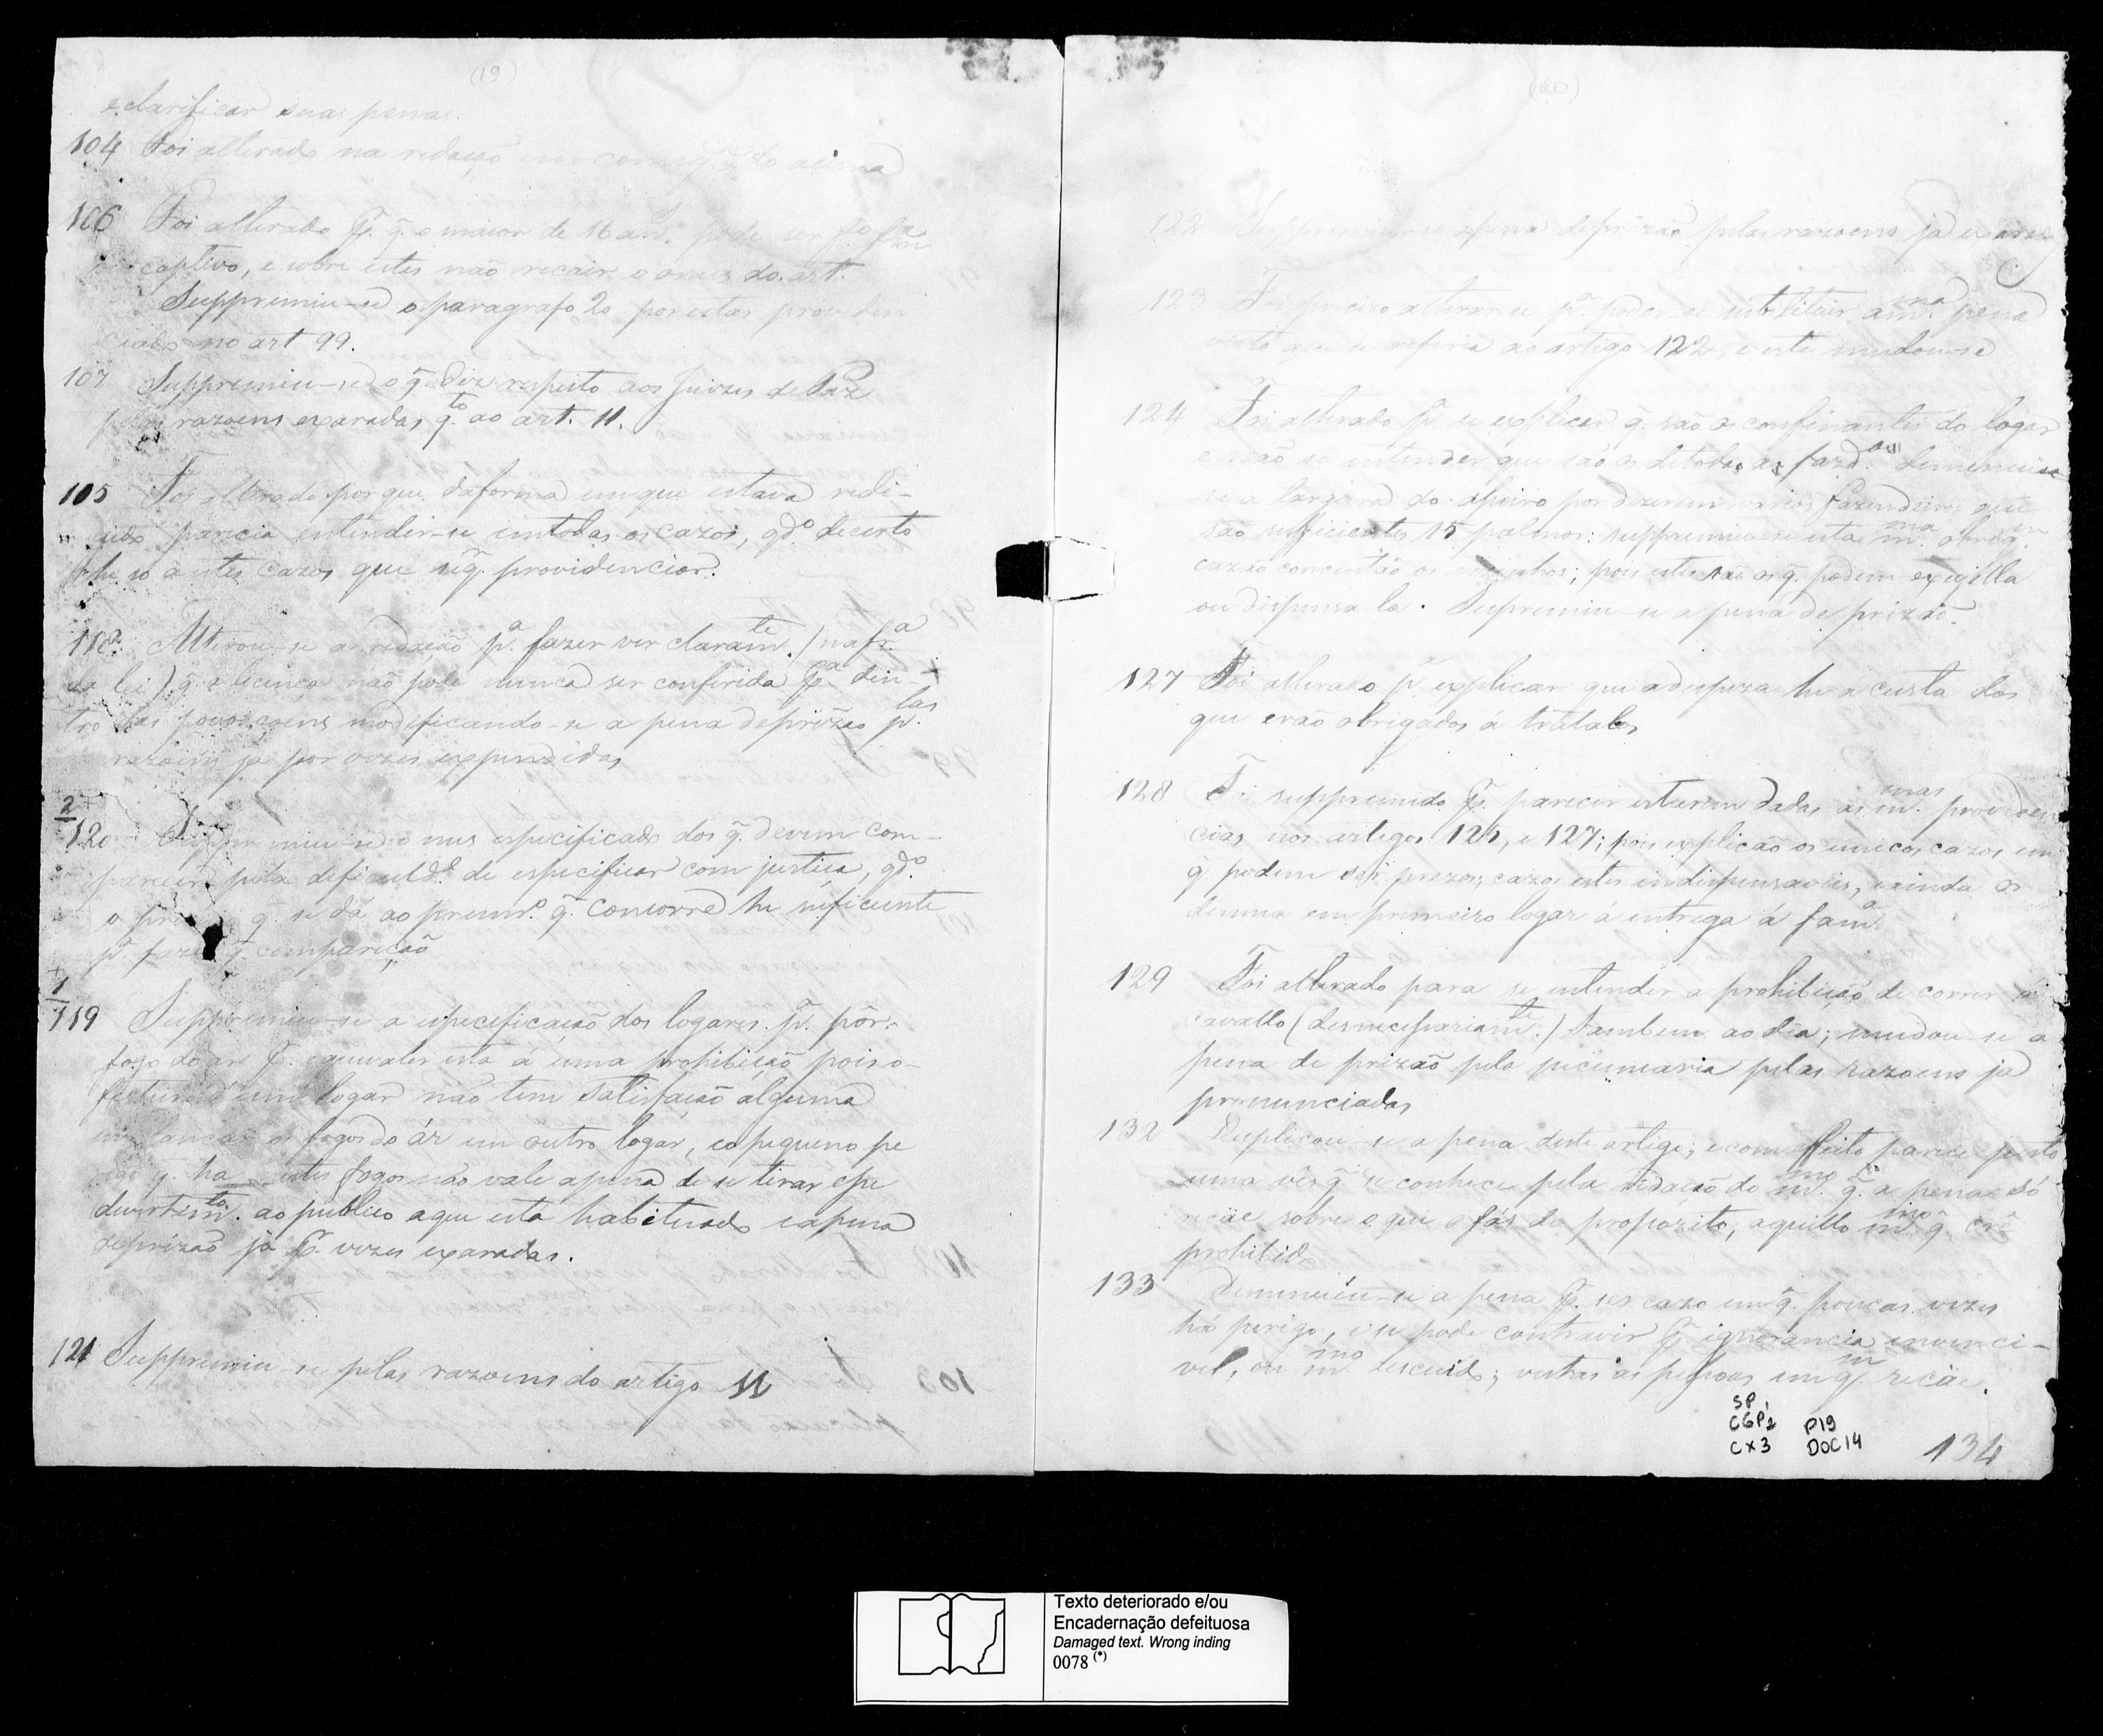 (19)
e clarificar suas penas.
104 Foi alterado na redação em conseq. do acima
106 Foi alterado p.r q̃. o maior de 16 an.s pode ser f.o fam.a
captivo, e sobre estes não recair o onus do art.
Suppremiu-se o paragrafo 2o por estar providen
ciado no art 99.
107 Suppremiu-se o q̃. diz respeito aos Juizes de Paz
pelas razoens exaradas q.to ao art. 11.
105 Foi alterado porque da forma em que estava redi-
gido parecia entender-se em todos os cazos, qd.o de certo
he so a estes cazos que se q.r providenciar.
118 Alterou-se a redação p.a fazer ver claram.te (na fr.a
da lei) q̃ a licença não pode nunca ser conferida p.a den-
tro das povoaçoens modificando-se a pena de prizão p.las
razoens ja por vezes expendidas
2
120 Suppremiu-se o nus especificado dos q̃. devem com-
parecer pela deficuld.e de especificar com justiça, qd.o
o premio q̃. se dá ao prem.o q̃. concorre he suficiente
p.a fazer q̃. compareção
+
1
119 Suppremiu-se a especificação dos logares p.a pôr-
fogo do ar p.r equivaler esta á uma prohibição pois o
festeiro d'um logar não tem satisfação alguma
em lançar os fogos do ár em outro logar, e o pequeno pe
rigo q̃. ha nestes fogos não vale a pena de se tirar esse
devertim.to ao publico a que está habituado e a pena
de prizão já p.r vezes exaradas.
121 Suppremiu-se pelas razoens do artigo 11
(20)
122 Suppremiu-se a pena de prizão pelas razoens ja exaradas
123 Foi precizo alterar-se p.a poder-se substituir a m.ma pena
visto que se referia ao artigo 122, e este mudou-se
124 Foi alterado p.a se explicar q̃. são os confinantes do logar
e não se entender que são os de todas as fazd.as Demenuiu
se a largura do aceiro por dizerem varios fazendeiros que
são suficientes 15 palmos: suppremiu-se esta m.ma obrig.
cazo concintão os visinhos; pois estes são os q̃. podem exegilla
ou dispensa la. Supremiu-se a pena de prizão.
127 Foi alterado p.a explicar que a despeza he a custa dos
que erão obrigados á tratalos
128 Foi suppremido p.r parecer estarem dadas as m.mas providen
cias nos artigos 125, e 127; pois explicão os unicos cazos em
q̃. podem ser prezos; cazos estes indispensaveis, e ainda os
demna em primeiro logar á entrega á fam.a
129 Foi alterado para se entender a prohibição de correr á
cavallo (desnecessariam.te) tambem ao dia; mudou-se a
pena de prizão pela pecuniaria pelas razoens ja
pronunciadas
132 Duplicou-se a pena deste artigo; e com effeito parece justo
uma vês q̃ se conhece pela redação do m.mo q̃. a pena só
recáe sobre o que o fás de propozito; aquillo m.mo q̃. crê
prohibido
133 Demenuiu-se a pena p.r ser cazo em q̃. poucas vezes
há perigo, e se pode contravir p.r ignorancia invenci-
vel, ou m.mo descuido; vistas as pessoas em q.m recáe.
SP,
CGP2 P19
CX3 DOC14
134
Texto deteriorado e/ou
Encadernação defeituosa
Damaged text. Wrong inding
0078 (*)